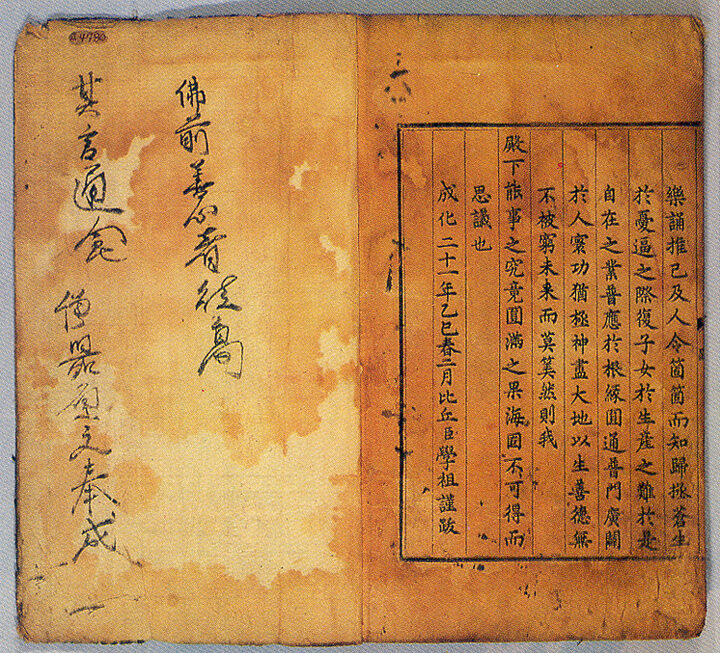 樂誦推己及人令箇箇而知歸拯蒼生
於憂逼之際復子女於生産之難於是
自在之業普應於根緣圓通普門廣闢
於人寰功猶極神盡大地以生善德無
不被窮未来而莫筭然則我
殿下能事之究竟圓滿之果海固不可得而
思議也
成化二十一年乙巳春二月比丘臣學祖謹跋
佛前善心者
其言通
奉成
4780